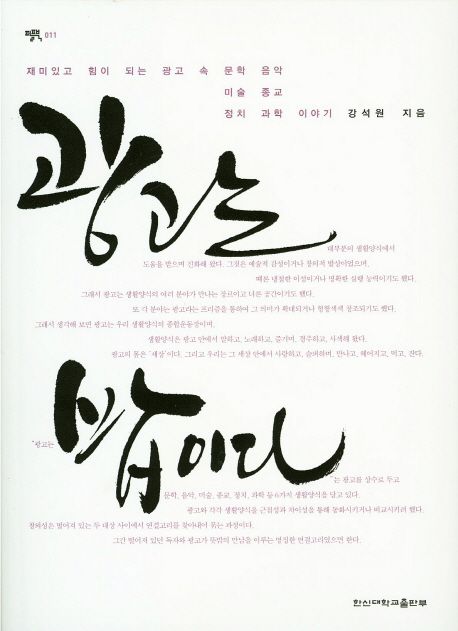 011
재미있고 힘이 되는 광고 속 문학 음악
미술 종교
정치 과학 이야기 강석원 지음
광고는
대부분의 생활양식에서
도움을 받으며 진화해 왔다. 그것은 예술적 감성이거나 창의적 발상이었으며,
때론 냉철한 이성이거나 명확한 실행 능력이기도 했다.
그래서 광고는 생활양식의 여러 분야가 만나는 장르이고 너른 공간이기도 했다.
또 각 분야는 광고라는 프리즘을 통하여 그 의미가 확대되거나 형형색색 창조되기도 했다.
그래서 생각해 보면 광고는 우리 생활양식의 종합운동장이며,
생활양식은 광고 안에서 말하고, 노래하고, 즐기며, 경주하고, 사색해 왔다.
광고의 몸은 '세상'이다. 그리고 우리는 그 세상 안에서 사랑하고, 슬퍼하며, 만나고, 헤어지고, 먹고, 잔다.
밥이다
"광고는
"는 광고를 상수로 두고
문학, 음악, 미술, 종교, 정치, 과학 등 6가지 생활양식을 담고 있다.
광고와 각각 생활양식을 근접성과 차이성을 통해 동화시키거나 비교시키려 했다.
창의성은 떨어져 있는 두 대상 사이에서 연결고리를 찾아내어 묶는 과정이다.
그간 떨어져 있던 독자와 광고가 뜻밖의 만남을 이루는 멍징한 연결고리였으면 한다.
한신대학교출판부